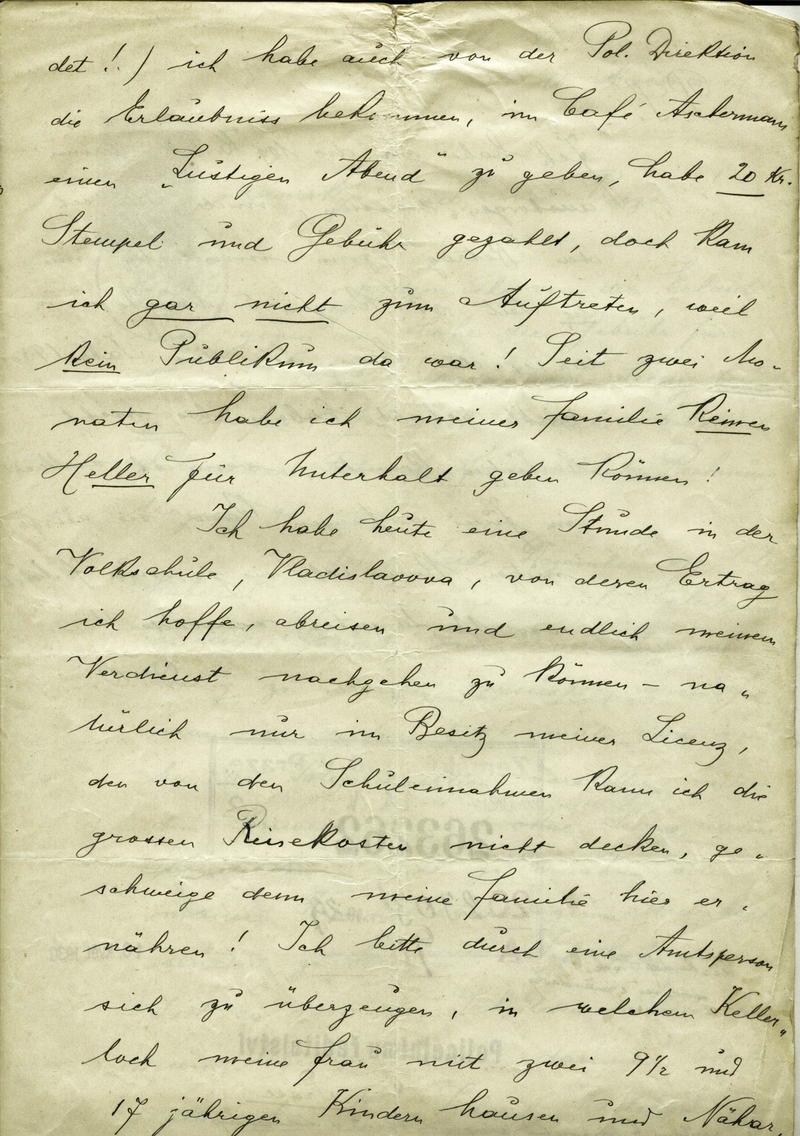 det!) ich habe auch von der Pol. Direktion
die Erlaubniss bekommen, im Café Aschermann
einen „Lustigen Abend" zu geben, habe 20 Kr.
Stempel und Gebühr gezahlt, doch kam
ich gar nicht zum Auftreten, weil
kein Publikum da war! Seit zwei Mo-
naten habe ich meiner Familie keinen
Heller für Unterhalt geben können!
Ich habe heute eine Stunde in der
Volkschule, Vladislavova, von deren Ertrag
ich hoffe, abreisen und endlich meinem
Verdienst nachgehen zu können – na-
türlich nur im Besitz meiner Licenz,
den von den Schuleinnahmen kann ich die
grossen Reisekosten nicht decken, ge-
schweige denn meine Familie hier er-
nähren! Ich bitte durch eine Amtsperson
sich zu überzeugen, in welchem Keller-
loch meine Frau mit zwei 9½ und
17 jährigen Kindern hausen und Nähar-